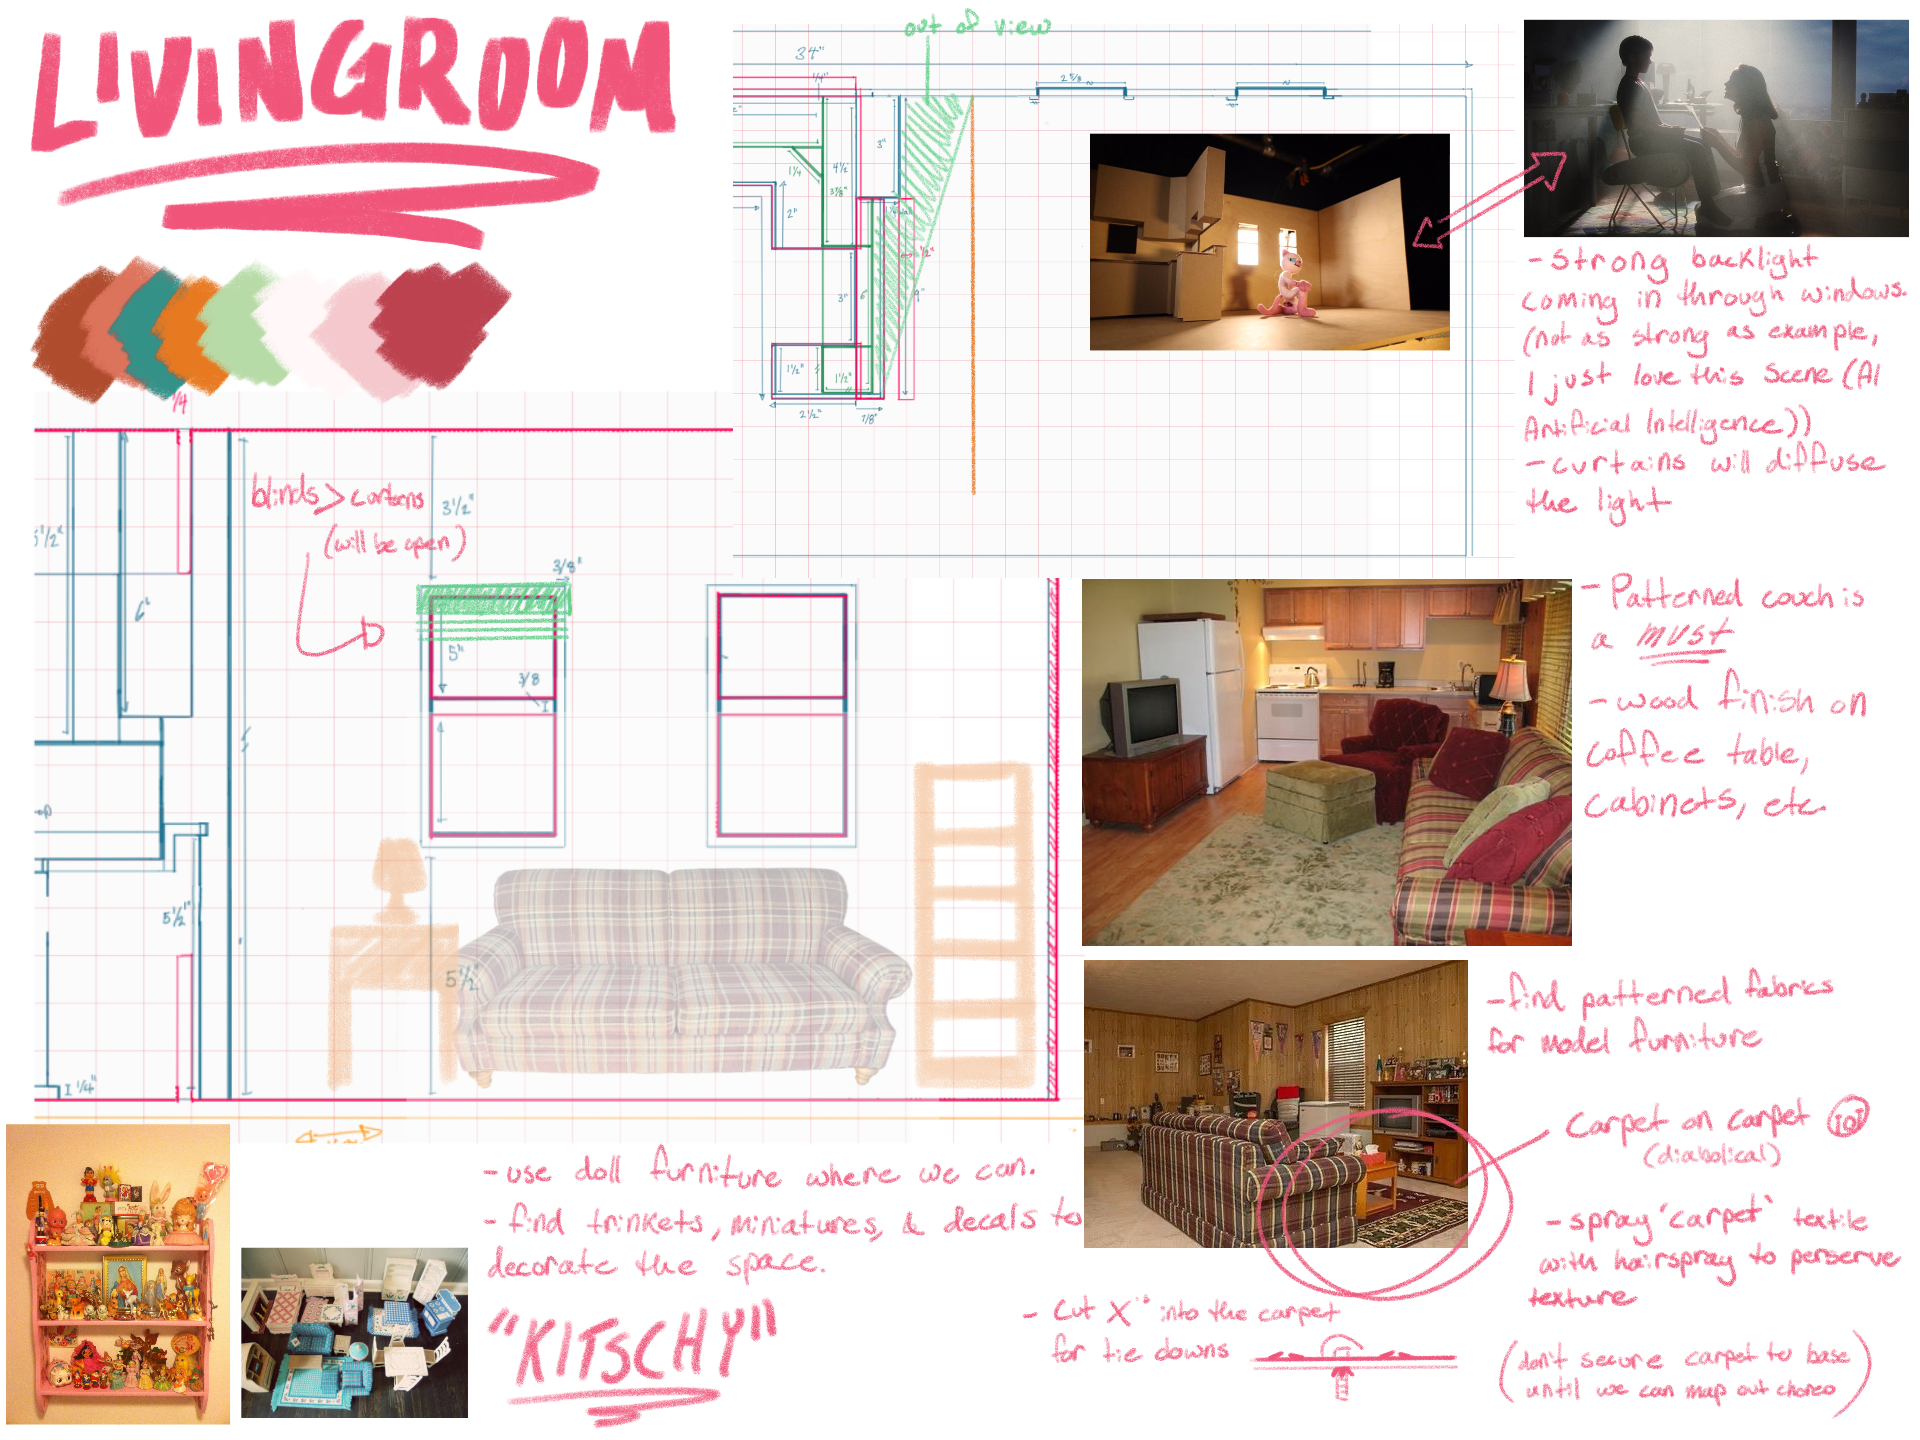 LIVINGROOM
out of view
34"
1/4"
2 5/8
3"
4 1/2
1 1/4
3/8"
2"
1/2"
3"
6"
9"
1 1/2"
1 1/2"
2 1/2"
7/8"
- Strong backlight
coming in through windows.
(not as strong as example,
I just love this scene (AI
Artificial Intelligence))
- curtains will diffuse
the light
1/4
blinds > curtains
(will be open)
3 1/2"
3/8"
5 1/2"
6"
5"
3/8
5 1/2"
5 1/2"
1 1/4"
- Patterned couch is
a must
- wood finish on
coffee table,
cabinets, etc.
- find patterned fabrics
for model furniture
Carpet on carpet
(diabolical)
- spray "carpet" textile
with hairspray to perserve
texture
- use doll furniture where we can.
- find trinkets, miniatures, & decals to
decorate the space.
"KITSCHY"
- Cut X's into the carpet
for tie downs
(don't secure carpet to base
until we can map out choreo)